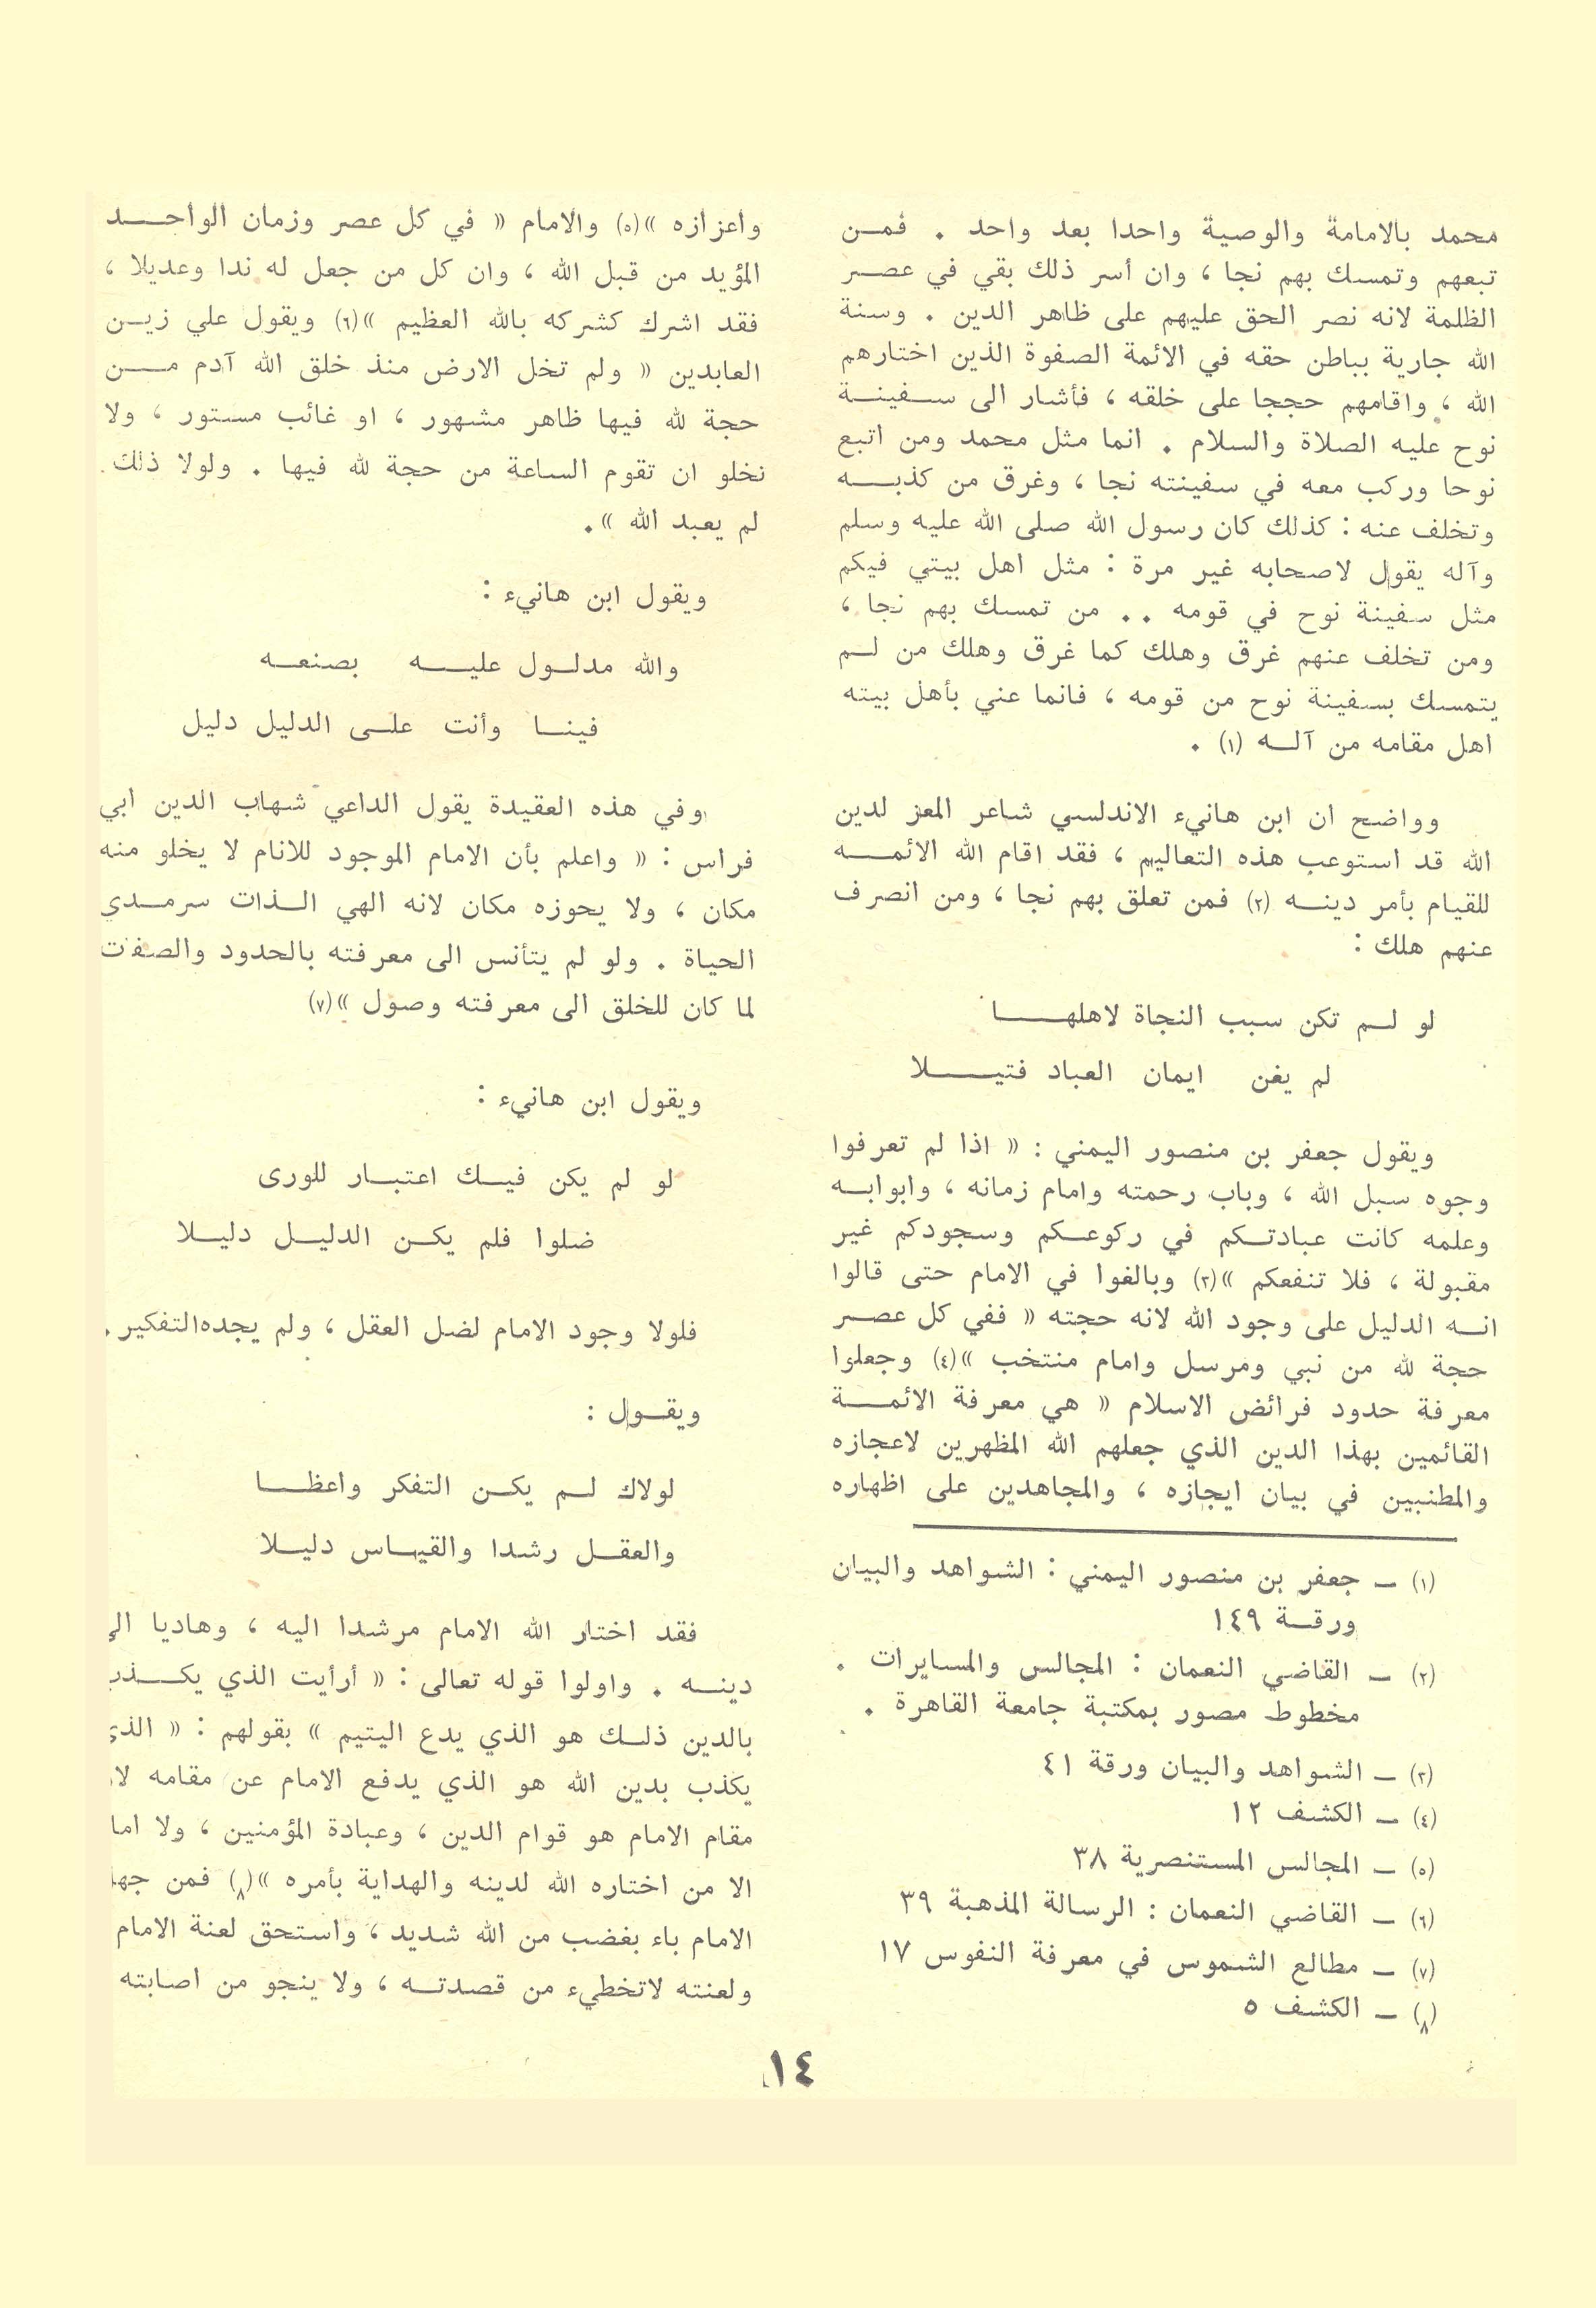 محمد بالامامة والوصية واحدا بعد واحد . فمن
تبعهم وتمسك بهم نجا ، وان أسر ذلك بقي في عصر
الظلمة لانه نصر الحق عليهم على ظاهر الدين . وسنة
الله جارية بباطن حقه في الائمة الصفوة الذين اختارهم
الله ، واقامهم حججا على خلقه ، فأشار الى سفينة
نوح عليه الصلاة والسلام . انما مثل محمد ومن اتبع
نوحا وركب معه في سفينته نجا ، وغرق من كذبه
وتخلف عنه : كذلك كان رسول الله صلى الله عليه وسلم
وآله يقول لاصحابه غير مرة : مثل اهل بيتي فيكم
مثل سفينة نوح في قومه . . من تمسك بهم نجا ،
ومن تخلف عنهم غرق وهلك كما غرق وهلك من لم
يتمسك بسفينة نوح من قومه ، فانما عني بأهل بيته
اهل مقامه من آله (١) .
وواضح ان ابن هانيء الاندلسي شاعر المعز لدين
الله قد استوعب هذه التعاليم ، فقد اقام الله الائمه
للقيام بأمر دينه (٢) فمن تعلق بهم نجا ، ومن انصرف
عنهم هلك :
لو لم تكن سبب النجاة لاهلها
لم يغن ايمان العباد فتيلا
ويقول جعفر بن منصور اليمني : « اذا لم تعرفوا
وجوه سبل الله ، وباب رحمته وامام زمانه ، وابوابه
وعلمه كانت عبادتكم في ركوعكم وسجودكم غير
مقبولة ، فلا تنفعكم »(٣) وبالغوا في الامام حتى قالوا
انه الدليل على وجود الله لانه حجته « ففي كل عصر
حجة لله من نبي ومرسل وامام منتخب »(٤) وجعلوا
معرفة حدود فرائض الاسلام « هي معرفة الائمة
القائمين بهذا الدين الذي جعلهم الله المظهرين لاعجازه
والمطنبين في بيان ايجازه ، والمجاهدين على اظهاره
(١) – جعفر بن منصور اليمني : الشواهد والبيان
ورقة ١٤٩
(٢) – القاضي النعمان : المجالس والمسايرات .
مخطوط مصور بمكتبة جامعة القاهرة .
(٣) – الشواهد والبيان ورقة ٤١
(٤) – الكشف ١٢
(٥) – المجالس المستنصرية ٣٨
(٦) – القاضي النعمان : الرسالة المذهبة ٣٩
(٧) – مطالع الشموس في معرفة النفوس ١٧
(٨) – الكشف ٥
واعزازه »(٥) والامام « في كل عصر وزمان الواحد
المؤيد من قبل الله ، وان كل من جعل له ندا وعديلا ،
فقد اشرك كشركه بالله العظيم »(٦) ويقول علي زين
العابدين « ولم تخل الارض منذ خلق الله آدم من
حجة لله فيها ظاهر مشهور ، او غائب مستور ، ولا
نخلو ان تقوم الساعة من حجة لله فيها . ولولا ذلك
لم يعبد الله ».
ويقول ابن هانيء :
والله مدلول عليه بصنعه
فينا وأنت على الدليل دليل
وفي هذه العقيدة يقول الداعي شهاب الدين ابي
فراس : « واعلم بأن الامام الموجود للانام لا يخلو منه
مكان ، ولا يحوزه مكان لانه الهي الذات سرمدي
الحياة . ولو لم يتأنس الى معرفته بالحدود والصفات
لما كان للخلق الى معرفته وصول »(٧)
ويقول ابن هانيء :
لو لم يكن فيك اعتبار للورى
ضلوا فلم يكن الدليل دليلا
فلولا وجود الامام لضل العقل ، ولم يجده التفكير .
ويقول :
لولاك لم يكن التفكر واعظا
والعقل رشدا والقياس دليلا
فقد اختار الله الامام مرشدا اليه ، وهاديا الى
دينه . واولوا قوله تعالى : « أرأيت الذي يكذب
بالدين ذلك هو الذي يدع اليتيم » بقولهم : « الذي
يكذب بدين الله هو الذي يدفع الامام عن مقامه
مقام الامام هو قوام الدين ، وعبادة المؤمنين ، ولا
الا من اختاره الله لدينه والهداية بأمره »(٨) فمن
الامام باء بغضب من الله شديد ، واستحق لعنة الامام
ولعنته لاتخطيء من قصدته ، ولا ينجو من اصابته
١٤